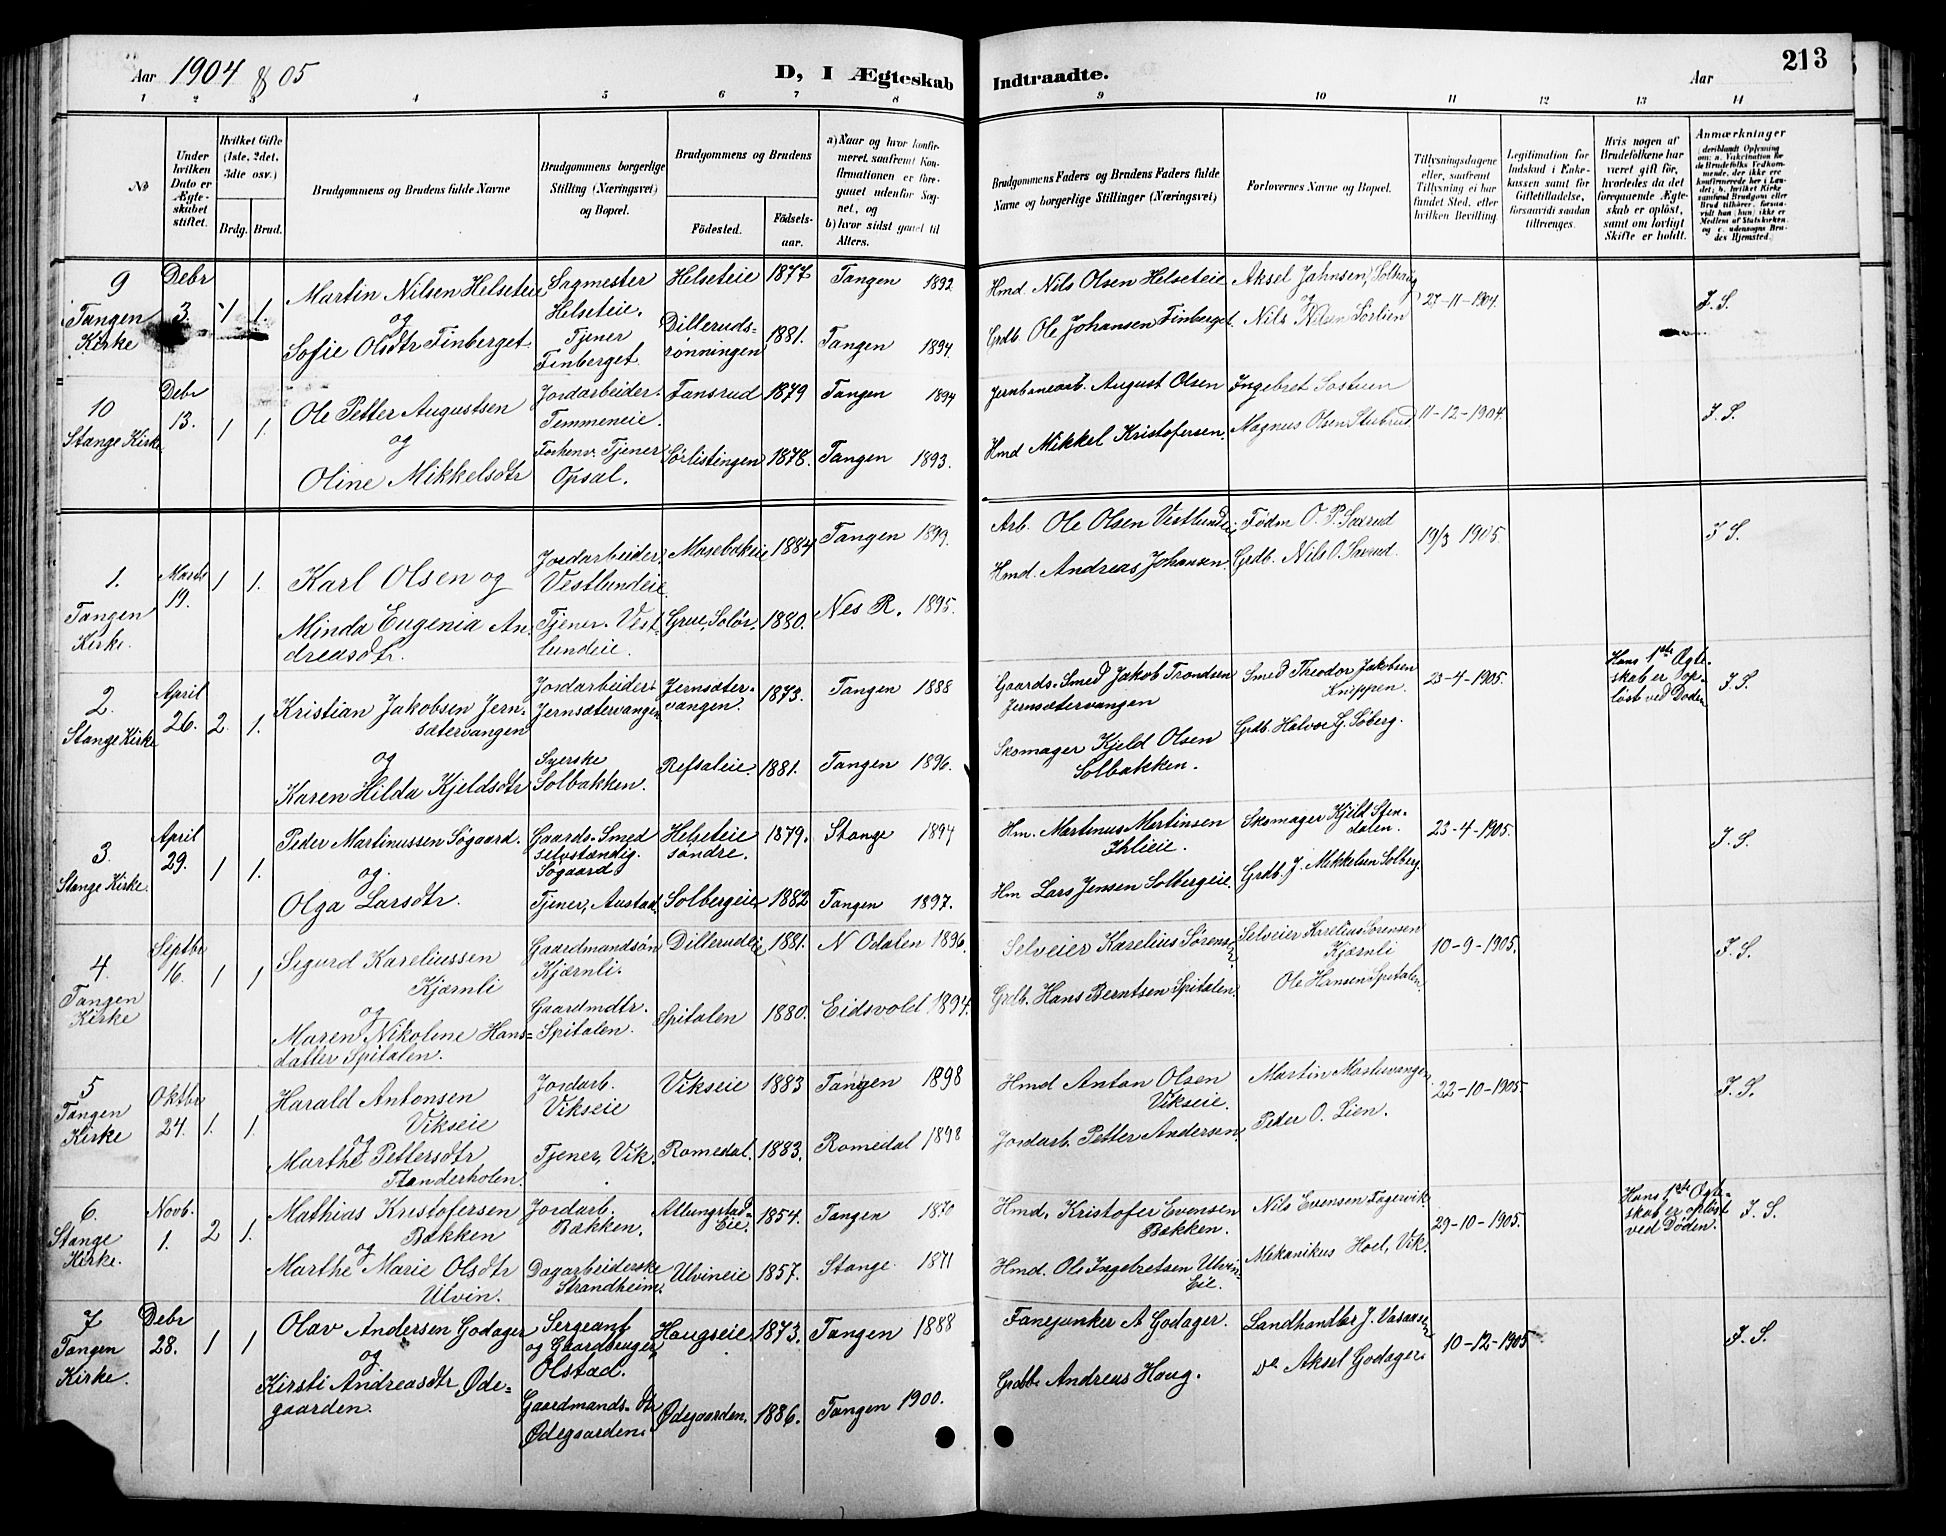 Aar 1904 & 05
D, I Ægteskab
Indtraadte.
Aar
213
1 2 3 4 5 6 7 8 9 10 11 12 13 14
No
Under hvilken Dato er Ægteskabet stiftet.
Hvilket Gifte (1ste, 2det, 3dte osv.)
Brdg. Brud.
Brudgommens og Brudens fulde Navne
Brudgommens borgerlige Stilling (Næringsvei) og Bopæl.
Brudgommens og Brudens
Fødested.
Fødselsaar.
a) Naar og hvor konfirmeret, saafremt Konfirmationen er foregaaet udenfor Sognet, og
b) hvor sidst gaaet til Alters.
Brudgommens Faders og Brudens Faders fulde Navne og borgerlige Stillinger (Næringsvei)
Forlovernes Navne og Bopæl.
Tillysningsdagene eller, saafremt Tillysning ei har fundet Sted, efter hvilken Bevilling.
Legitimation for Indskud i Enkekassen samt for Giftetilladelse, forsaavidt saadan tiltrænges.
Hvis nogen af Brudefolkene har været gift før, hvorledes da det foregaaende Ægteskab er opløst, samt om lovligt Skifte er holdt.
Anmærkninger
9
Tangen Kirke
Debr 3.
1 1.
Martin Nilsen Helseteie
og
Sofie Olsdtr Finberget
Sagmester
Helseteie.
Tjener
Finberget.
Helseteie 1877
Dilleruds-
rønningen 1881.
Tangen 1892
Tangen 1894.
Hmd. Nils Olsen Helseteie
Grdb. Ole Johansen Finberget.
Aksel Jahnsen, Solhaug
og
Nils Nilsen Sørlien
27-11-1904.
J. S.
10
Stange Kirke
Debr 13.
1 1.
Ole Petter Augustsen
og
Oline Mikkelsdtr
Jordarbeider
Temmeneie.
Forhenv. Tjener
Opsal.
Tansrud 1879
Sørlistingen 1878.
Tangen 1894
Tangen 1893.
Jernbanearb. August Olsen
Hmd Mikkel Kristofersen.
Ingebret Sostuen
Magnus Olsen Stubrud
11-12-1904.
J. S.
1.
Tangen Kirke.
Marts 19.
1 1.
Karl Olsen og
Minda Eugenia An-
dreasdtr.
Jordarbeider.
Vestlundeie
Tjener. Vest-
lundeie.
Mosebækeie 1884
Grue, Solør. 1880.
Tangen 1899.
Nes R. 1895.
Arb. Ole Olsen Vestlundei
Hmd. Andreas Johansen
Fødm O. P. Saxrud
Grdb. Nils O. Saxrud.
19/3 1905.
J S.
2.
Stange Kirke
April 26.
2. 1.
Kristian Jakobsen Jern-
sætervangen
og
Karen Hilda Kjeldsdtr
Jordarbeider.
Jernsætervangen
Syerske
Solbakken.
Jernsæter-
vangen. 1873.
Refsaleie. 1881.
Tangen 1888
Tangen 1896.
Gaards-Smed Jakob Trondsen
Jernsætervangen
Skomager Kjeld Olsen
Solbakken.
Smed Theodor Jakobsen
Knippen.
Grdb. Halvor G. Søberg.
23-4-1905.
Hans 1ste Ægte-
skab er op-
løst ved Døden
J S.
3.
Stange Kirke.
April 29.
1 1.
Peder Martinussen Søgaard.
og
Olga Larsdtr.
Gaards-Smed
selvstændig.
Søgaard
Tjener, Austad.
Helseteie
søndre. 1879.
Solbergeie 1882
Stange 1894
Tangen 1897.
Hm. Martinus Martinsen
Ihlieie.
Hm Lars Jensen Solbergeie
Skomager Kjeld Sten-
dalen.
Grdb. J. Mikkelsen Solberg.
23-4-1905.
J. S.
4.
Tangen Kirke
Septbr 16.
1 1
Sigurd Kareliussen
Kjærnli
og
Maren Nikoline Hans-
datter Spitalen.
Gaardmandsøn
Kjærnli.
Gaardmdtr.
Spitalen.
Dillerudeie 1881.
Spitalen 1880.
N Odalen 1896.
Eidsvold 1894.
Selveier Karelius Sørensen
Grdb. Hans Berntsen Spitalen.
Selveier Karelius Sørensen
Kjærnli
Ole Hansen Spitalen.
10-9-1905.
J. S.
5
Tangen Kirke
Oktbr 24.
1. 1.
Harald Antonsen
Vikseie
og
Marthe Pettersdtr
Jordarb.
Vikseie
Tjener, Vik.
Vikseie 1883
Romedal. 1883.
Tangen 1898
Romedal 1898
Hmd Anton Olsen
Vikseie.
Jordarb. Petter Andersen
Martin
Peder O. Lien.
22-10-1905.
J. S.
6.
Stange Kirke.
Novb. 1.
2 1.
Mathias Kristofersen
Bakken
og
Marthe Marie Olsdtr
Ulvin.
Jordarb.
Bakken.
Dagarbeiderske
Strandheim.
Allungstad-
Eie. 1854.
Ulvineie 1857.
Tangen 1870
Stange 1871
Hmd. Kristofer Evensen
Bakken.
Hmd. Ole Ingebretsen Ulvin-
Eie.
Nils Evensen Fagervik.
Mekanikus Hoel, Vik.
29-10-1905.
Hans 1ste Ægte-
skab er opløst
ved Døden.
J. S.
7
Tangen Kirke.
Debr 28.
1 1
Olav Andersen Godager
og
Kirsti Andreasdtr Øde-
gaarden.
Sergeant
og Gaardbruger
Olstad.
Gaardmands-dtr
Ødegaarden.
Haugseie 1873.
Ødegaarden. 1886.
Tangen 1888
Tangen 1900.
Fanejunker A Godager.
Grdbr Andreas Haug.
Landhandler J. Vasaasen
do Aksel Godager.
10-12-1905
J. S.